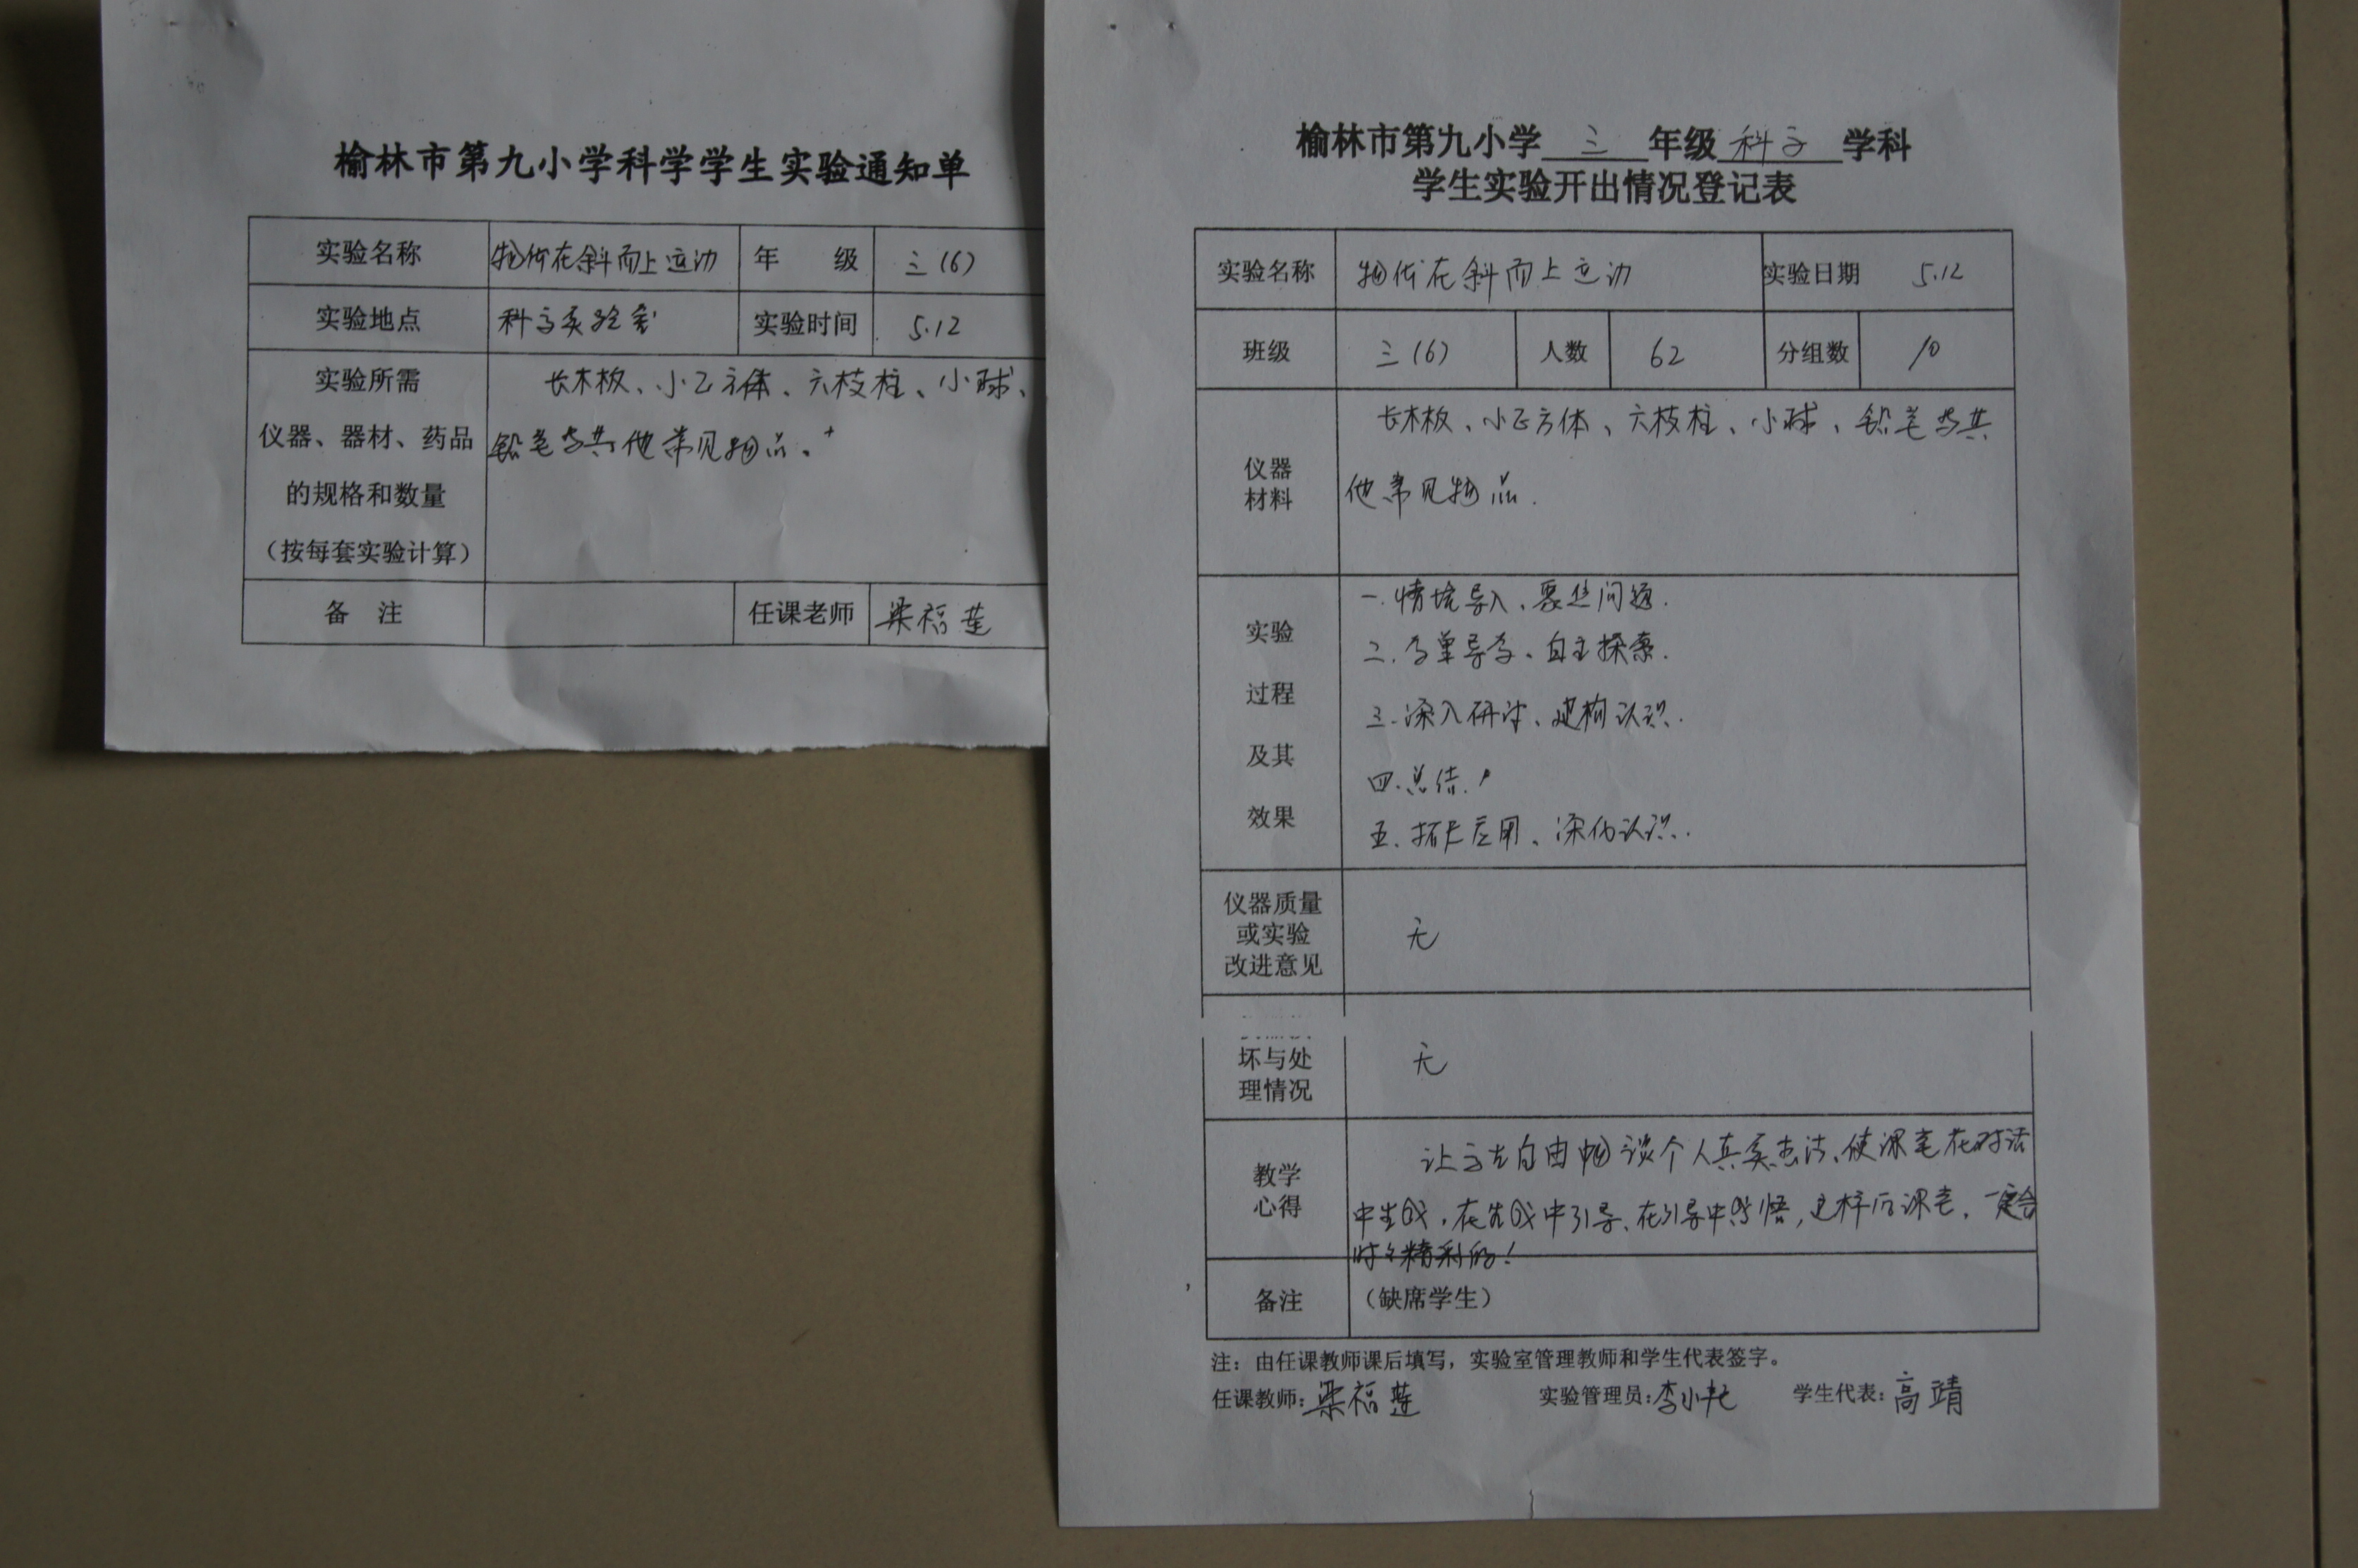 榆林市第九小学科学学生实验通知单
实验名称 物体在斜面上运动 年 级 三(6)
实验地点 科学实验室 实验时间 5.12
实验所需
仪器、器材、药品
的规格和数量
(按每套实验计算)
长木板、小正方体、六枝柱、小球、
铅笔与其他常见物品。
备 注 任课老师 梁福莲
榆林市第九小学 三 年级 科学 学科
学生实验开出情况登记表
实验名称 物体在斜面上运动 实验日期 5.12
班级 三(6) 人数 62 分组数 10
仪器
材料
长木板、小正方体、六枝柱、小球、铅笔与其
他常见物品.
实验
过程
及其
效果
一.情境导入、聚焦问题.
二.学单导学、自主探索.
三.深入研讨、建构认识.
四.总结.
五.拓展应用、深化认识.
仪器质量
或实验
改进意见
无
坏与处
理情况
无
教学
心得
让学生自由畅谈个人真实想法、使课堂在对话
中生成,在生成中引导、在引导中感悟,这样的课堂,一定会
时时精彩的!
备注 (缺席学生)
注:由任课教师课后填写,实验室管理教师和学生代表签字。
任课教师:梁福莲 实验管理员:李小 学生代表:高靖